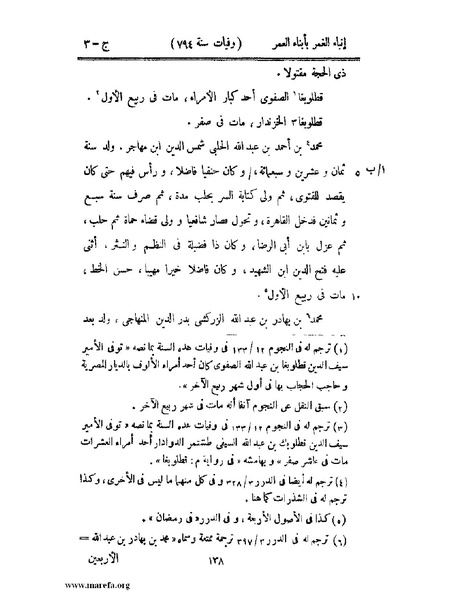 إنباء الغمر بأبناء العمر (وفيات سنة ٧٩٤) ج-٣
ذى الحجة مقتولا.
قطلوبغا١ الصفوى أحد كبار الامراء، مات فى ربيع الأول٢.
قطلوبغا٣ الخزندار، مات فى صفر.
محمد٤ بن أحمد بن عبد الله الحلبى شمس الدين ابن مهاجر. ولد سنة
١/ب ٥ ثمان و عشرين و سبعمائة،/ و كان حنفيا فاضلا، و رأس فيهم حتى كان
يقصد للفتوى، ثم ولى كتابة السر بحلب مدة، ثم صرف سنة سبع
و ثمانين فدخل القاهرة، و تحول فصار شافعيا و ولى قضاء حماة ثم حلب،
ثم عزل بابن أبى الرضا، و كان ذا فضيلة فى النظم و النثر، أثنى
عليه فتح الدين ابن الشهيد، و كان فاضلا خيرا مهيبا، حسن الخط،
١٠ مات فى ربيع الأول٥.
محمد٦ بن بهادر بن عبد الله الزركشى بدر الدين المنهاجى، ولد بعد
(١) ترجم له فى النجوم ١٢/١٣٣ فى وفيات هذه السنة بما نصه « توفى الأمير
سيف الدين قطلوبغا بن عبد الله الصفوى كان أحد أمراء الألوف بالديار المصرية
و حاجب الحجاب بها فى أول شهر ربيع الآخر ».
(٢) سبق النقل عن النجوم آنفا أنه مات فى شهر ربيع الآخر.
(٣) ترجم له فى النجوم ١٢/١٣٣ فى وفيات هذه السنة بما نصه « توفى الأمير
سيف الدين قطلوبك بن عبد الله السيفى طشتمر الدوادار أحد أمراء العشرات
مات فى عاشر صفر » و بهامشه « فى رواية م: قطلوبغا ».
(٤) ترجم له أيضا فى الدرر ٣/٣٢٨ و فى كل منهما ما ليس فى الأخرى، و كذا
ترجم له فى الشذرات كما هنا.
(٥) كذا فى الأصول الأربعة، و فى الدرر« فى رمضان ».
(٦) ترجم له فى الدرر ٣/٣٩٧ ترجمة ممتعة وسماه « محمد بن بهادر بن عبد الله =
١٣٨ الأربعين
www.marefa.org